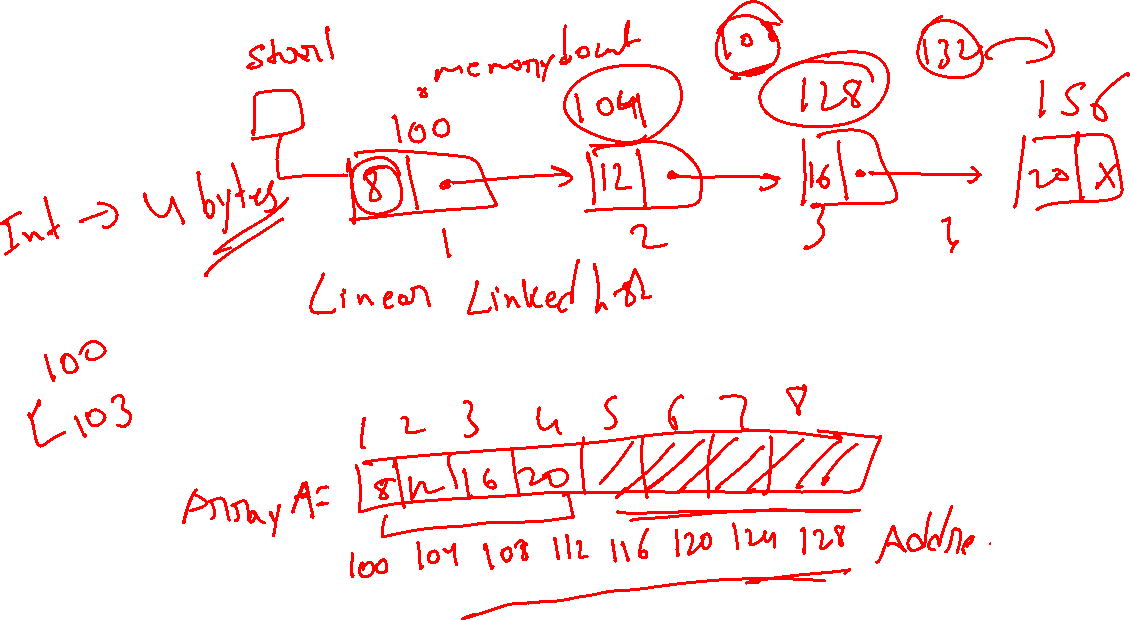 start
memory
10
132
100
104
128
156
8
12
16
20 X
Int → 4 bytes
1 2 3
Linear Linked list
100
103
1 2 3 4 5 6 7 8
Array A= 8 12 16 20
100 104 108 112 116 120 124 128 Addre.